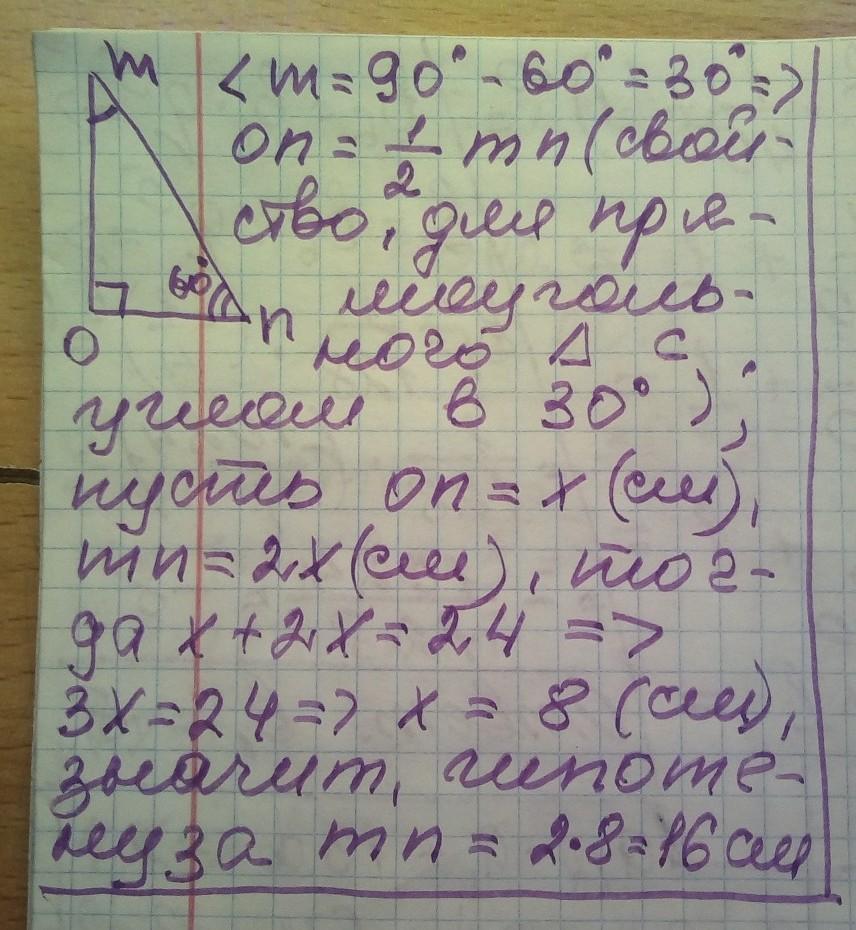 m
<m = 90° - 60° = 30° =>
on = 1/2 mn (свой-
ство, для пря-
60°
моуголь-
n
O
ного Δ с
углом в 30°);
пусть on = x (см),
mn = 2x (см), тог-
да x + 2x = 24 =>
3x = 24 => x = 8 (см),
значит, гипоте-
нуза mn = 2·8 = 16 см